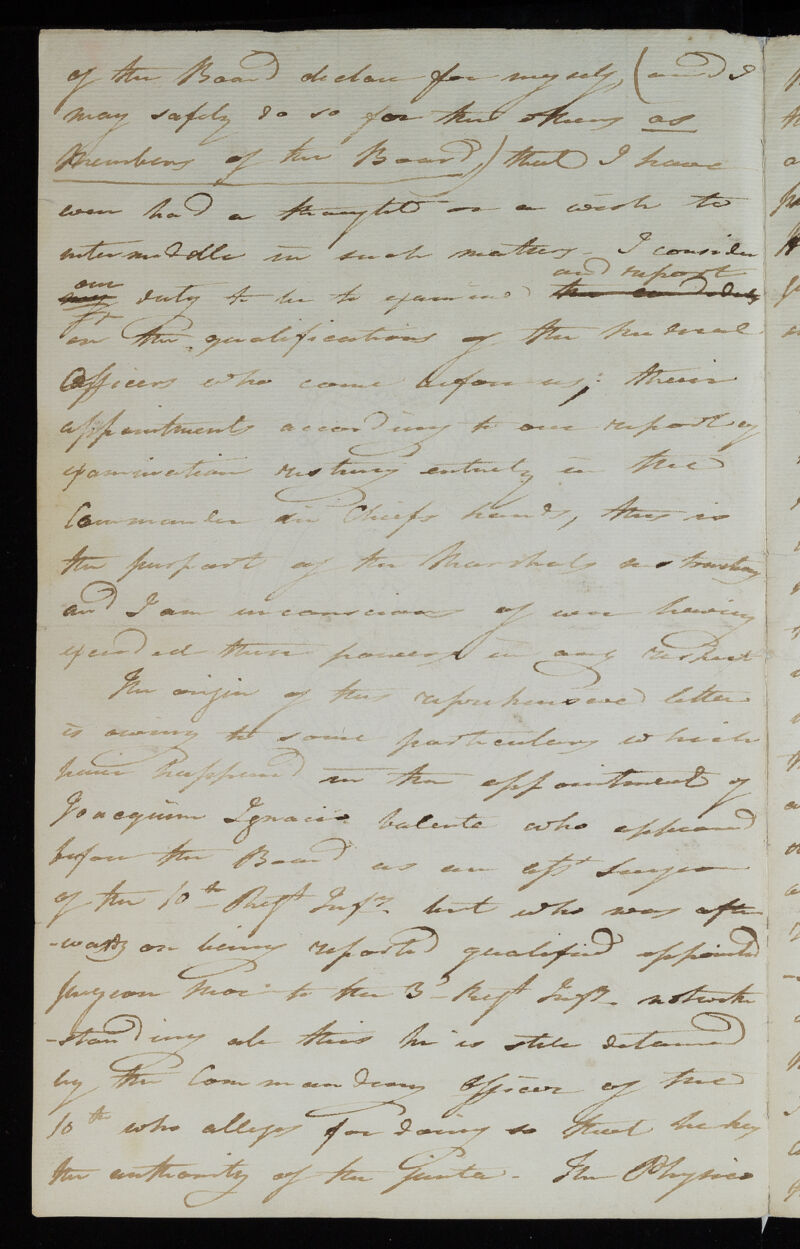 of the Board declare for myself, (and I
may safely do so for the others as
Members of the Board,) that I have
ever had a thought or a wish to
intermeddle in such matters - I consider
our and report
duty to be to examine the candidates
on the qualifications of the medical
Officers who come before us; their
appointments according to our report of
examination resting entirely in the
Commander in Chiefs hands, this is
the purport of the Marshals instructions
and I am unconscious of ever having
exceeded these powers in any respect
The origin of this reprehensive letter
is owing to some particulars which
have happened in the appointment of
Joacquim Ignacio Valente who appeared
before the Board as an asst Surgeon
of the 10th Regt Infy. but who was after
-wards on being reported qualified appointed
Surgeon Mor to the 3d Regt Infy. notwith
-standing all this he is still detained
by the Commanding Officer of the
10th who alleges for doing so that he has
the authority of the Junta - The Physico